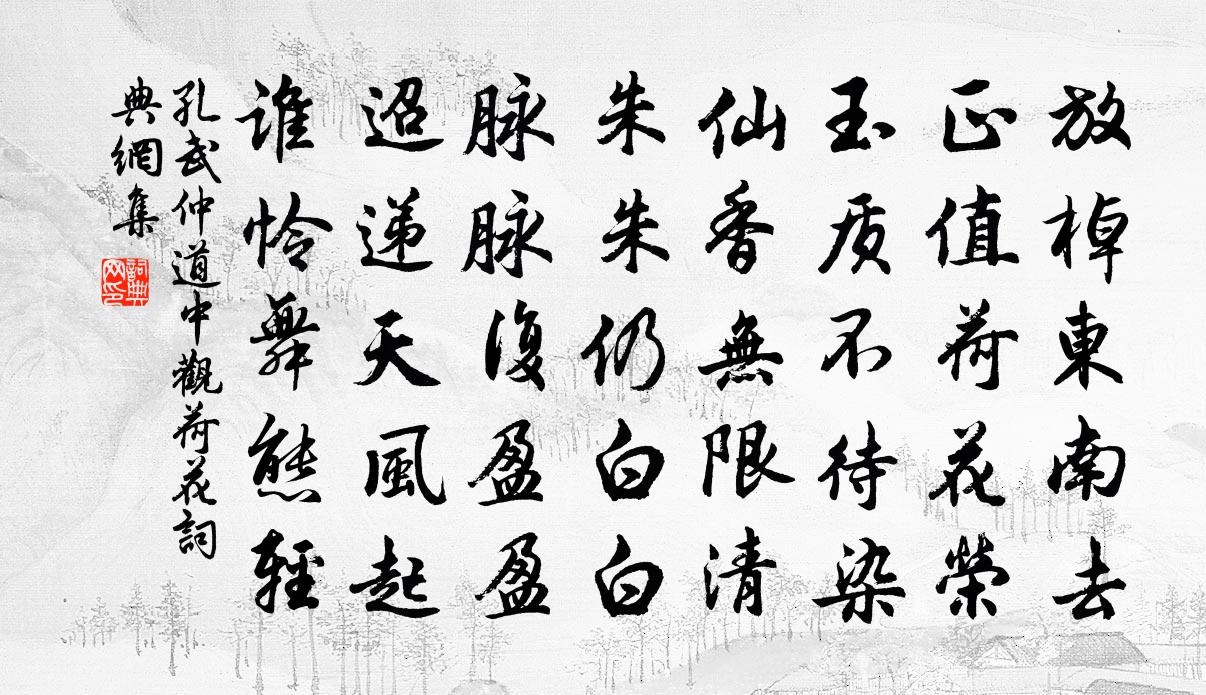 放棹東南去
正值荷花榮
玉质不待染
仙香無限清
朱朱仍白白
脉脉復盈盈
迢递天風起
誰怜舞態輕
孔武仲道中觀荷花詞
典網集
詞典网印